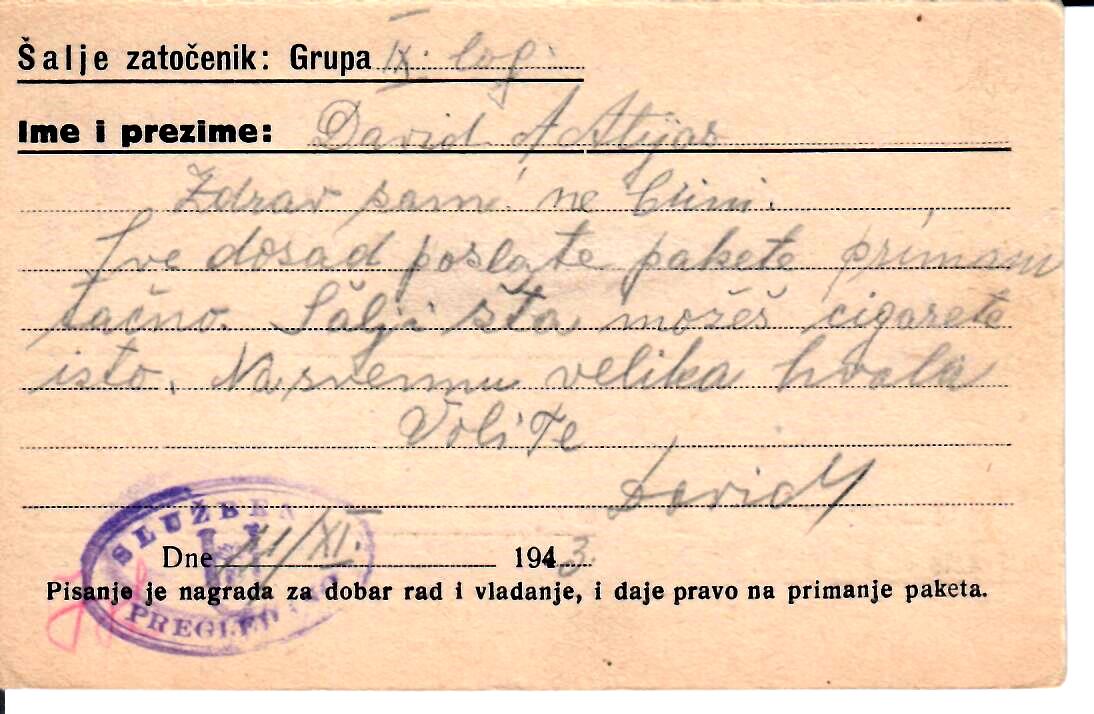 Šalje zatočenik: Grupa IX. log.
Ime i prezime: David A Atijas
Zdrav sam. ne brini.
Sve dosad poslate pakete primam
tačno. Šalji šta možeš cigarete
isto. Na svemu velika hvala
Voli Te
David
SLUŽBENO
Dne 11/XI. 1943.
Pisanje je nagrada za dobar rad i vladanje, i daje pravo na primanje paketa.
PREGLEDANO